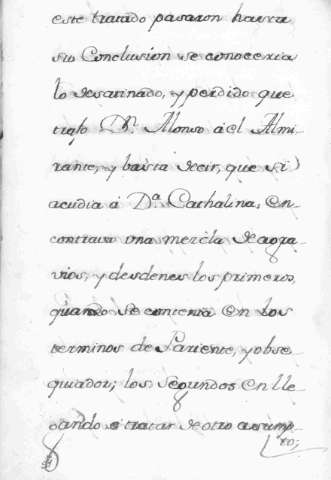 este tratado pasaron hasta
su Conclusion se conoceria
lo desatinado, y perdido que
trajo Dn. Alonso à el Almi
rante, y basta decir, que si
acudia à Da. Cathalina, en-
contrava una mezcla de agra
vios, y desdenes los primeros,
quando se contenia en los
terminos de Pariente, y obse
quiador; los segundos en lle
gando a tratar de otro asump
to;